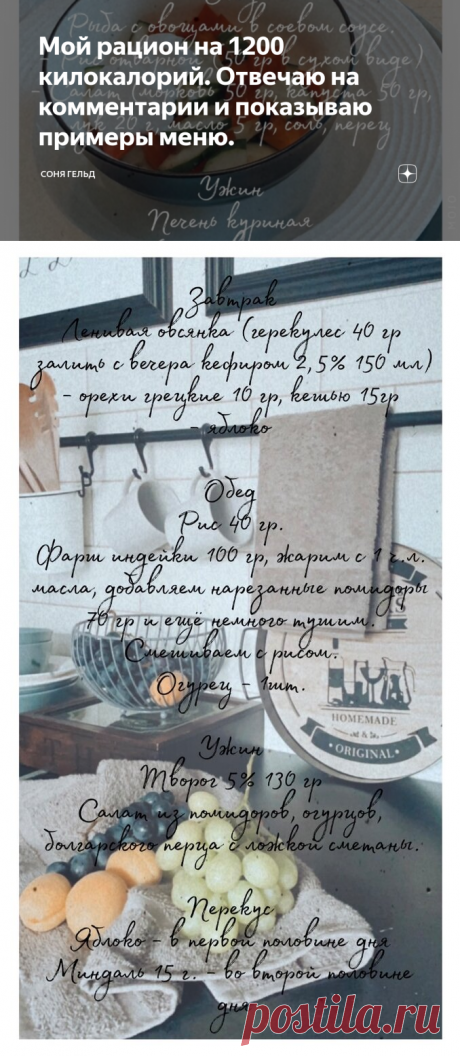 Рыба с овощами в соевом соусе.
Рис отварной (50 гр в сухом виде)
Салат (морковь 50 гр, капуста 50 гр,
лук 20 г, масло 5 гр, соль, перец
Мой рацион на 1200
килокалорий. Отвечаю на
комментарии и показываю
примеры меню.
СОНЯ ГЕЛЬД
Ужин
Печень куриная
Завтрак
Ленивая овсянка (герекулес 40 гр
залить с вечера кефиром 2,5% 150 мл)
- орехи грецкие 10 гр, кешью 15гр
- яблоко
Обед
Рис 40 гр.
Фарш индейки 100 гр, жарим с 1 ч.л.
масла, добавляем нарезанные помидоры
70 гр и ещё немного тушим.
Смешиваем с рисом.
Огурец - 1шт.
HOMEMADE
ORIGINAL
Ужин
Творог 5% 130 гр
Салат из помидоров, огурцов,
болгарского перца с ложкой сметаны.
Перекус
Яблоко - в первой половине дня
Миндаль 15 г. - во второй половине
дня
postila.ru